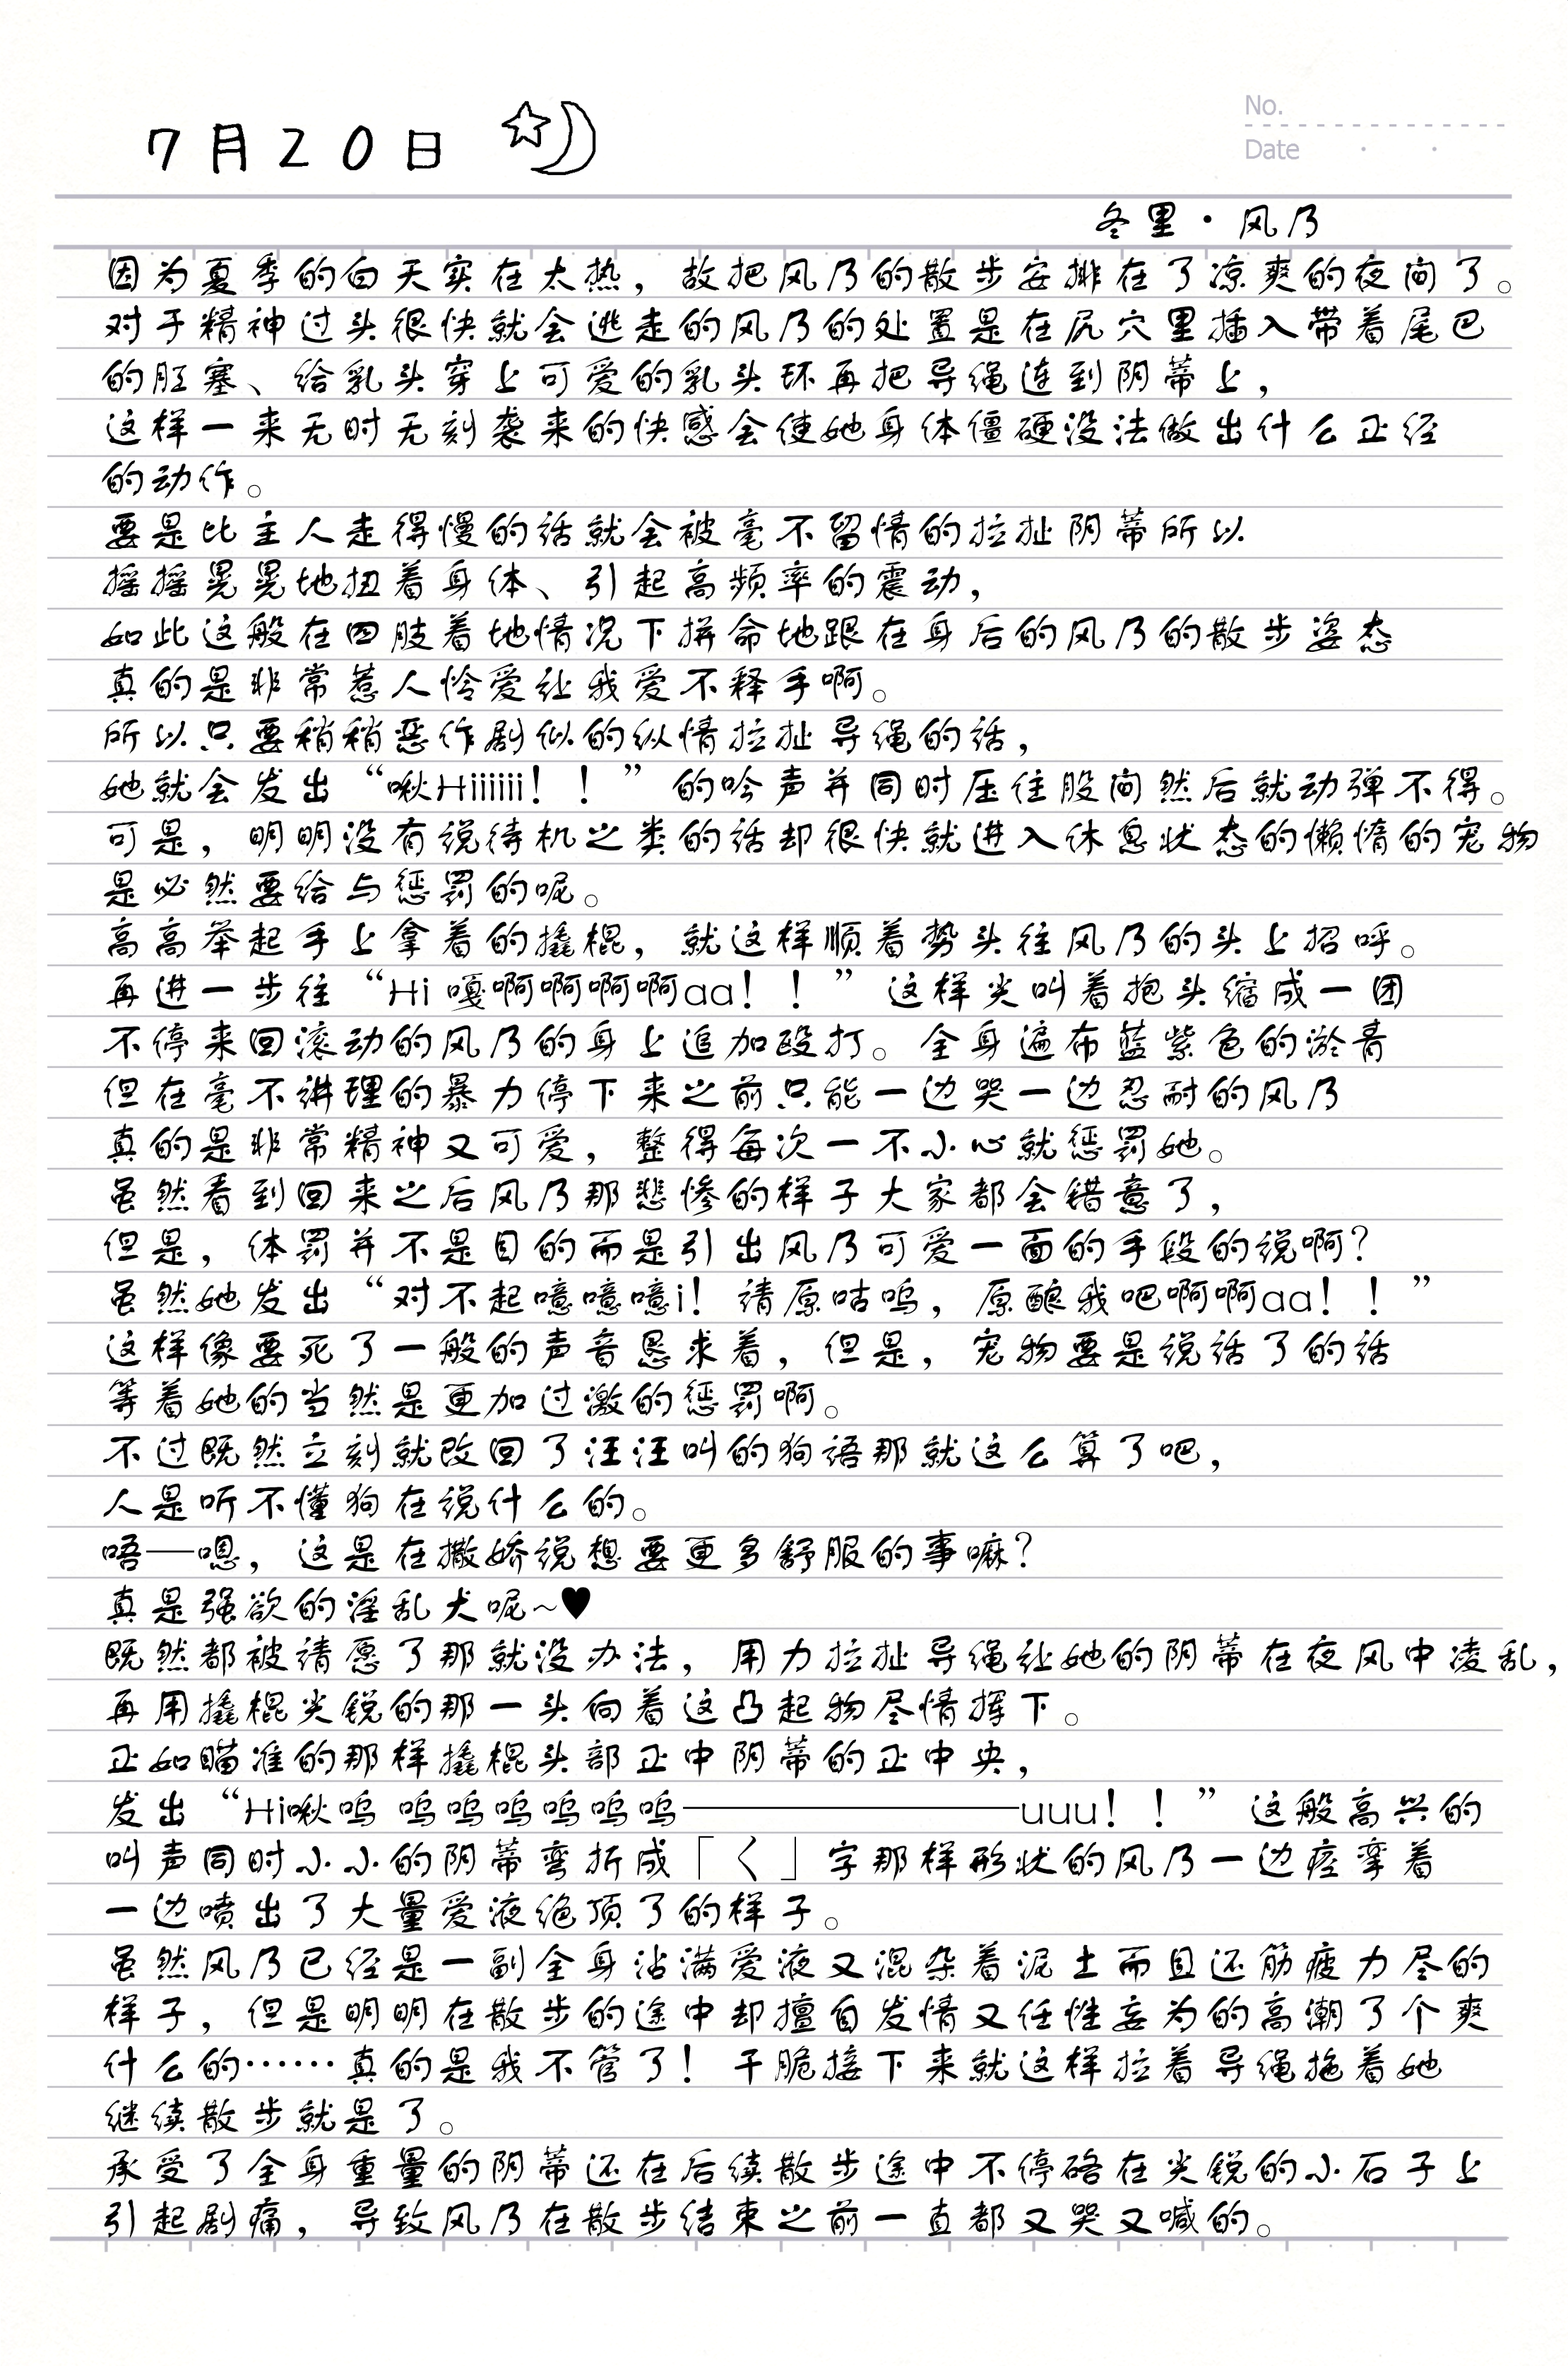 7月20日
No.
Date
冬里·风乃
因为夏季的白天实在太热，故把风乃的散步安排在了凉爽的夜间了。
对于精神过头很快就会逃走的风乃的处置是在尻穴里插入带着尾巴
的肛塞、给乳头穿上可爱的乳头环再把导绳连到阴蒂上，
这样一来无时无刻袭来的快感会使她身体僵硬没法做出什么正经
的动作。
要是比主人走得慢的话就会被毫不留情的拉扯阴蒂所以
摇摇晃晃地扭着身体、引起高频率的震动，
如此这般在四肢着地情况下拼命地跟在身后的风乃的散步姿态
真的是非常惹人怜爱让我爱不释手啊。
所以只要稍稍恶作剧似的纵情拉扯导绳的话，
她就会发出“啾Hiiiiii！！”的吟声并同时压住股间然后就动弹不得。
可是，明明没有说待机之类的话却很快就进入休息状态的懒惰的宠物
是必然要给与惩罚的呢。
高高举起手上拿着的撬棍，就这样顺着势头往风乃的头上招呼。
再进一步往“Hi 嘎啊啊啊啊aa！！”这样尖叫着抱头缩成一团
不停来回滚动的风乃的身上追加殴打。全身遍布蓝紫色的淤青
但在毫不讲理的暴力停下来之前只能一边哭一边忍耐的风乃
真的是非常精神又可爱，整得每次一不小心就惩罚她。
虽然看到回来之后风乃那悲惨的样子大家都会错意了，
但是，体罚并不是目的而是引出风乃可爱一面的手段的说啊？
虽然她发出“对不起噫噫噫i！请原咕呜，原酿我吧啊啊aa！！”
这样像要死了一般的声音恳求着，但是，宠物要是说话了的话
等着她的当然是更加过激的惩罚啊。
不过既然立刻就改回了汪汪叫的狗语那就这么算了吧，
人是听不懂狗在说什么的。
唔──嗯，这是在撒娇说想要更多舒服的事嘛？
真是强欲的淫乱犬呢~♥
既然都被请愿了那就没办法，用力拉扯导绳让她的阴蒂在夜风中凌乱，
再用撬棍尖锐的那一头向着这凸起物尽情挥下。
正如瞄准的那样撬棍头部正中阴蒂的正中央，
发出“Hi啾呜 呜呜呜呜呜呜———————uuu！！”这般高兴的
叫声同时小小的阴蒂弯折成「く」字那样形状的风乃一边痉挛着
一边喷出了大量爱液绝顶了的样子。
虽然风乃已经是一副全身沾满爱液又混杂着泥土而且还筋疲力尽的
样子，但是明明在散步的途中却擅自发情又任性妄为的高潮了个爽
什么的……真的是我不管了！干脆接下来就这样拉着导绳拖着她
继续散步就是了。
承受了全身重量的阴蒂还在后续散步途中不停硌在尖锐的小石子上
引起剧痛，导致风乃在散步结束之前一直都又哭又喊的。